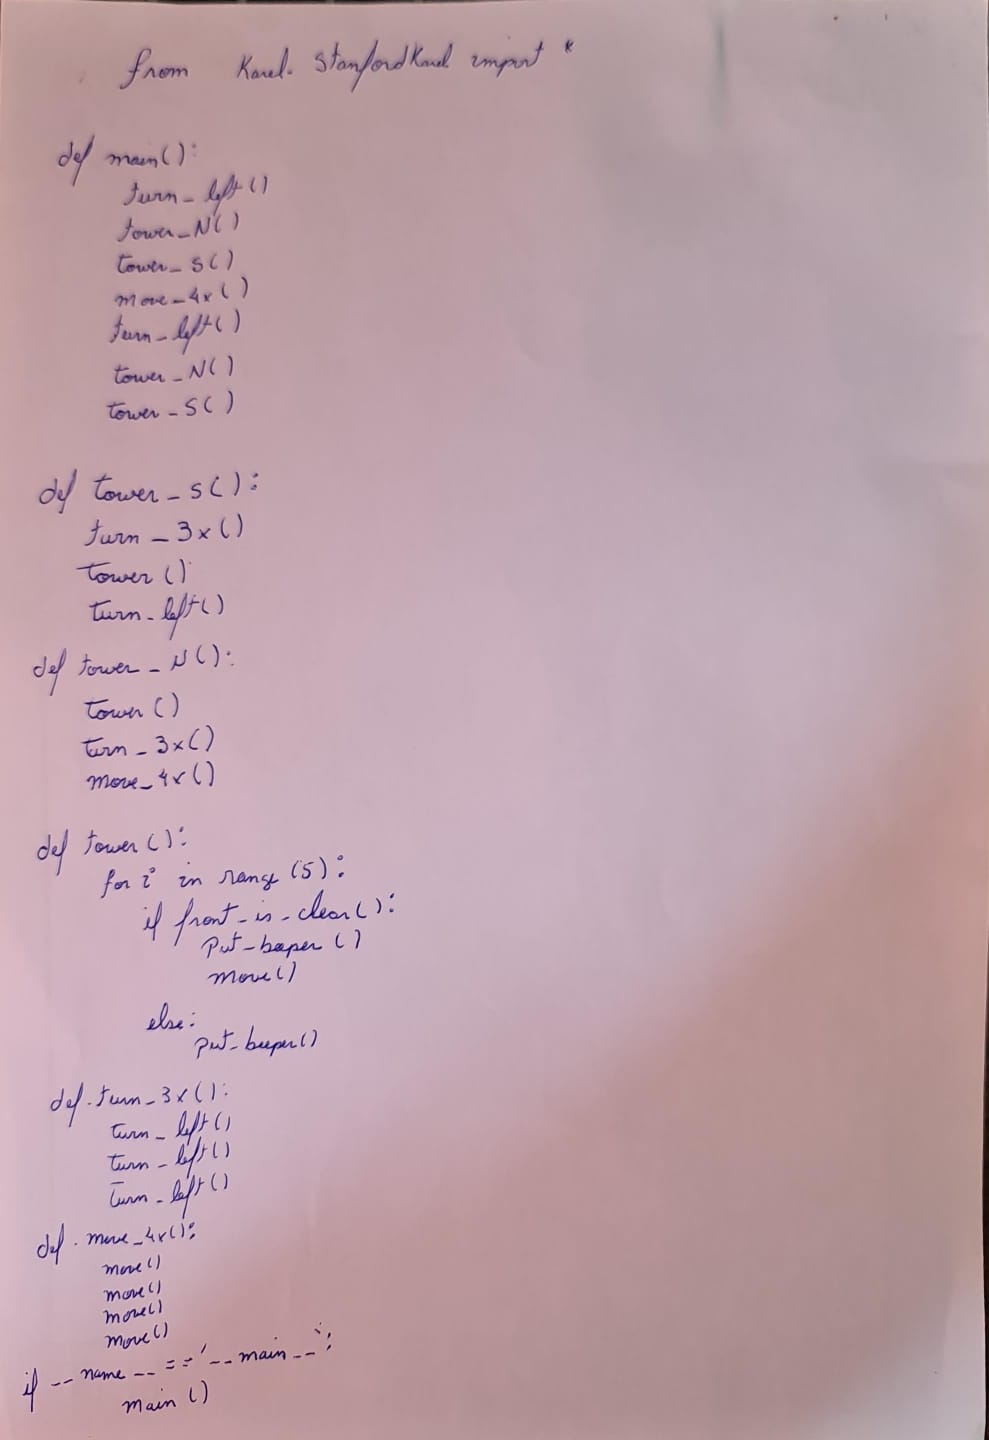 from Karel. StanfordKarel import *
def main():
turn_left()
tower_N()
tower_S()
move_4x()
turn_left()
tower_N()
tower_S()
def tower_S():
turn_3x()
tower()
turn_left()
def tower_N():
tower()
turn_3x()
move_4x()
def tower():
for i in range (5):
if front_is_clear():
Put_beeper()
move()
else:
put_beeper()
def. turn_3x():
turn_left()
turn_left()
turn_left()
def. move_4x():
move()
move()
move()
move()
if __name__ == '__main__':
main()